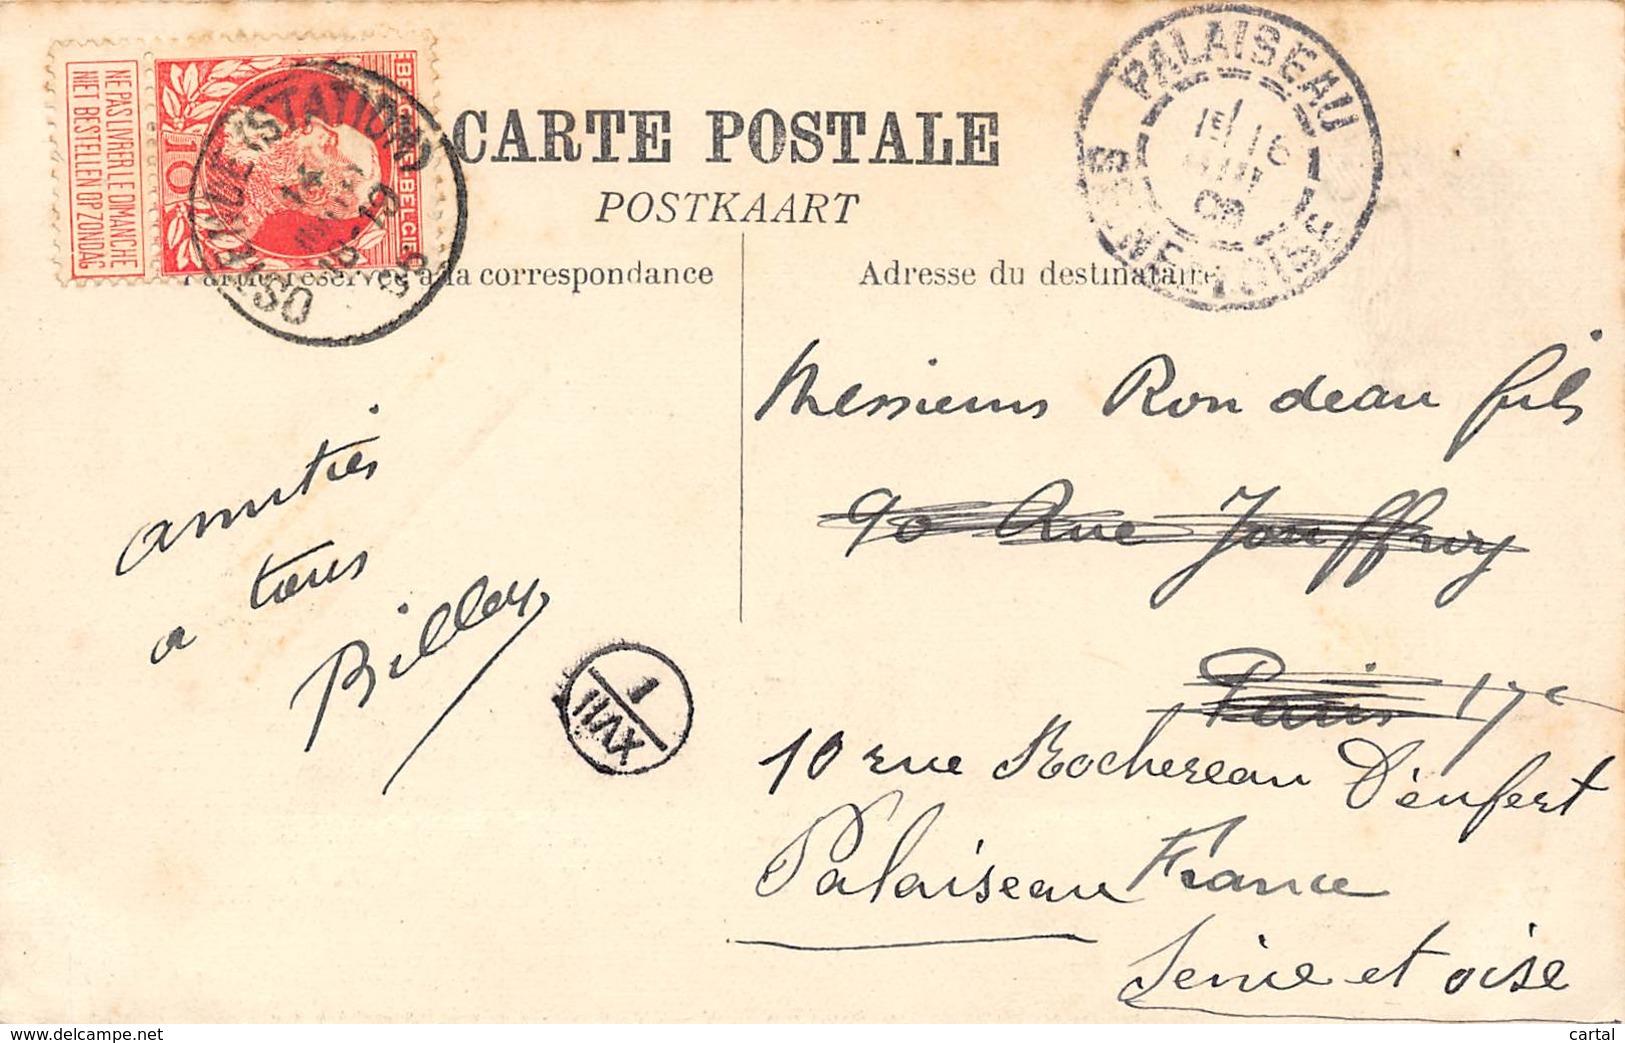 NE PAS LIVRER LE DIMANCHE
NIET BESTELLEN OP ZONDAG
10
BELGIQUE-BELGIE
OSTENDE (STATION)
14
18-19
CARTE POSTALE
POSTKAART
Partie réservée à la correspondance
Adresse du destinataire
PALAISEAU
16
SEINE-ET-OISE
amitiés
a tous
Billey
1
XVII
Messieurs Rondeau fils
90 Rue Jouffroy
Paris 17e
10 rue Rochereau D'enfert
Palaiseau France
Seine et oise
cartal
delcampe.net